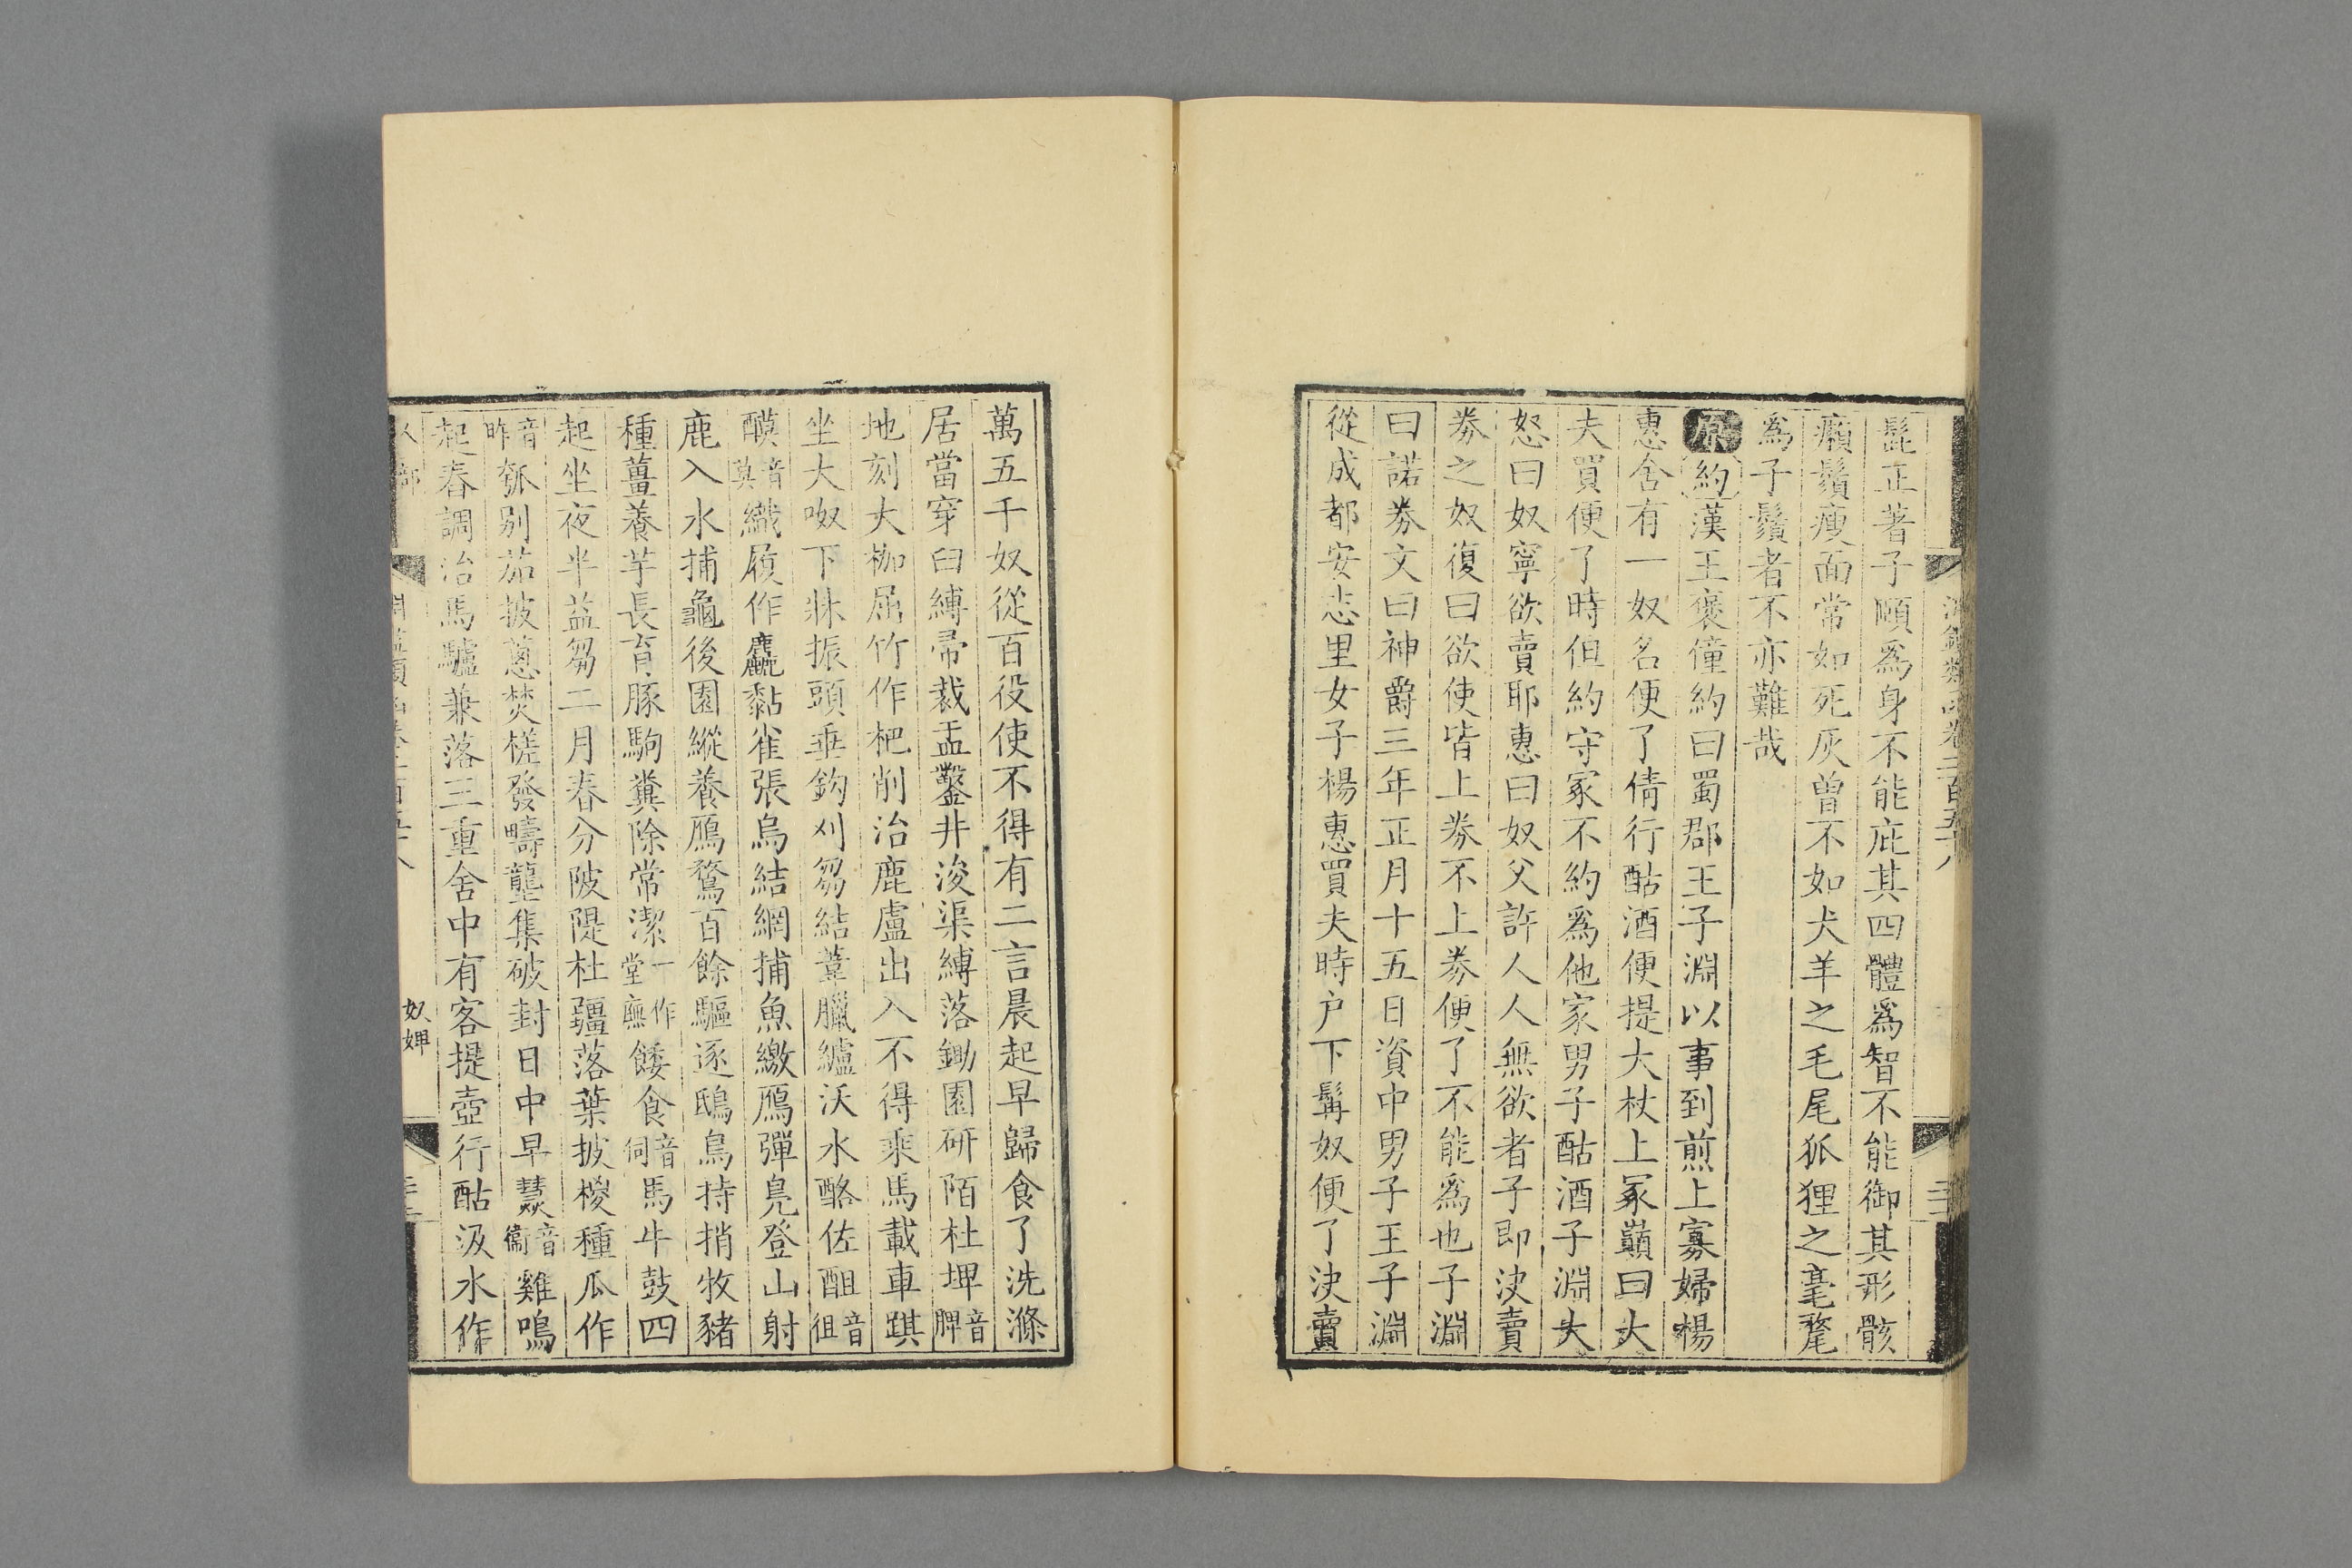 髭正著子頤爲身不能庇其四體爲智不能御其形骸
癩鬚瘦面常如死灰曾不如犬羊之毛尾狐狸之毫氂
爲子鬚者不亦難哉
原約漢王褒僮約曰蜀郡王子淵以事到煎上寡婦楊
惠舍有一奴名便了倩行酤酒便提大杖上冢巔曰大
夫買便了時但約守冢不約爲他家男子酤酒子淵大
怒曰奴寧欲賣耶惠曰奴父許人人無欲者子即決賣
券之奴復曰欲使皆上券不上券便了不能爲也子淵
曰諾券文曰神爵三年正月十五日資中男子王子淵
從成都安志里女子楊惠買夫時戶下髯奴便了決賣
萬五千奴從百役使不得有二言晨起早歸食了洗滌
居當穿臼縛帚裁盂鑿井浚渠縛落鋤園研陌杜埤音脾
地刻大枷屈竹作杷削治鹿盧出入不得乘馬載車踑
坐大呶下牀振頭垂鉤刈芻結葦臘纑沃水酪佐酤音徂
醭音莫織履作麤黏雀張烏結網捕魚繳雁彈鳧登山射
鹿入水捕龜後園縱養雁鶩百餘驅逐鴟鳥持捎牧豬
種薑養芋長育豚駒糞除常潔一作堂廡餧食音伺馬牛鼓四
起坐夜半益芻二月春分陂隄杜疆落葉披椶種瓜作
音昨瓠別茄披蔥焚槎發疇壟集破封日中早㷸音衞雞鳴
起舂調治馬驢兼落三重舍中有客提壺行酤汲水作
人部
奴婢